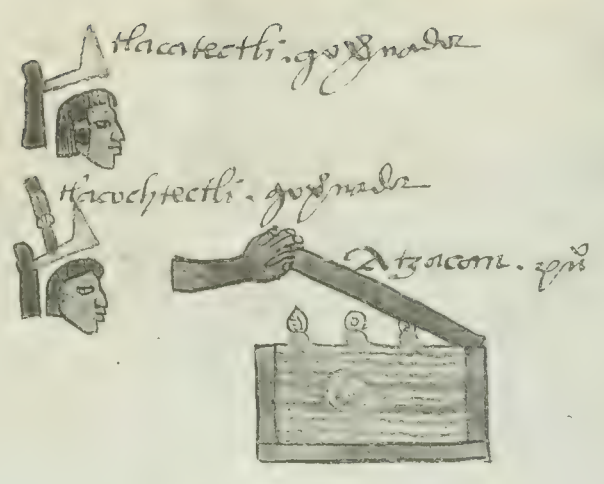 tlacatectli . gov̄nador
tlacochtectli . gov̄nador
Atzacan . pu͞o